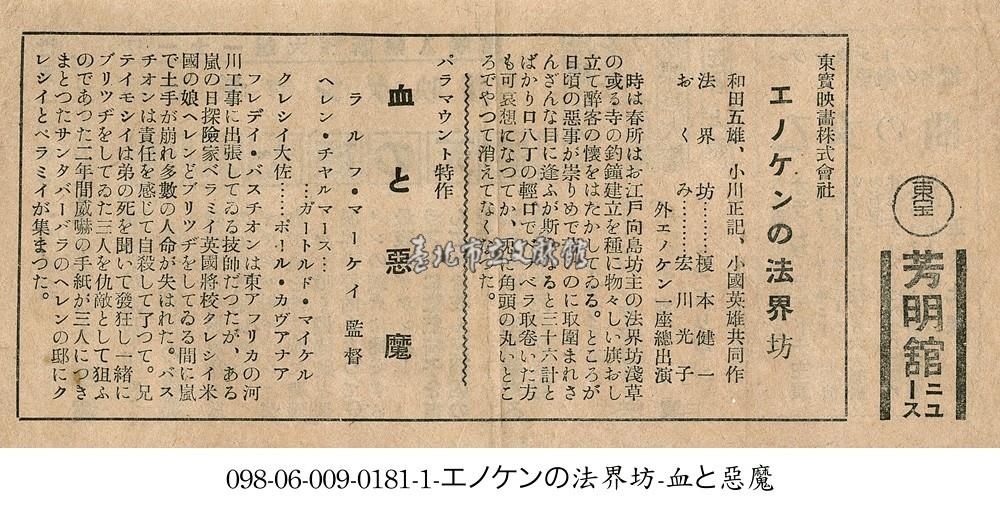 東宝
芳明舘
ニュース
東寶映畫株式會社
エノケンの法界坊
和田五雄、小川正記、小國英雄共同作
法界坊………榎本健一
おくみ………宏川光子
外エノケン一座總出演
時は春所はお江戸向島坊主の法界坊淺草
の或る寺の釣鐘建立を種に物々しい旗おし
立て醉客の懷をはたかしてゐる。ところが
日頃の惡事が崇りめで
んざんな目に逢ふが斯
ばかり口八丁の輕口で
も可哀想になつてか、
ろでやつて消えてなく
パラマウント特作
血と惡魔
ラルフ・マーケイ監督
ヘレン・チヤルマース…
…ガートルド・マイケル
クレシイ大佐……ポール・カヴアナア
フレデイ・バスチオンは東アフリカの河
川工事に出張してゐる技師だつたが、ある
嵐の日探險家ベラミイ英國將校クレシイ米
國の娘ヘレンどブリツヂをしてゐる間に嵐
で土手が崩れ多數の人命が失はれた。バス
チオンは責任を感じて自殺して了つて。兄
テイモシイは弟の死を聞いて發狂し一緒に
ブリツヂをしてゐた三人を仇敵として狙ふ
のであつた二年間威嚇の手紙が三人につき
まとつたサンタバーバラのヘレンの邸にク
レシイとベラミイが集まつた。
臺北市立文獻館
098-06-009-0181-1-エノケンの法界坊-血と惡魔